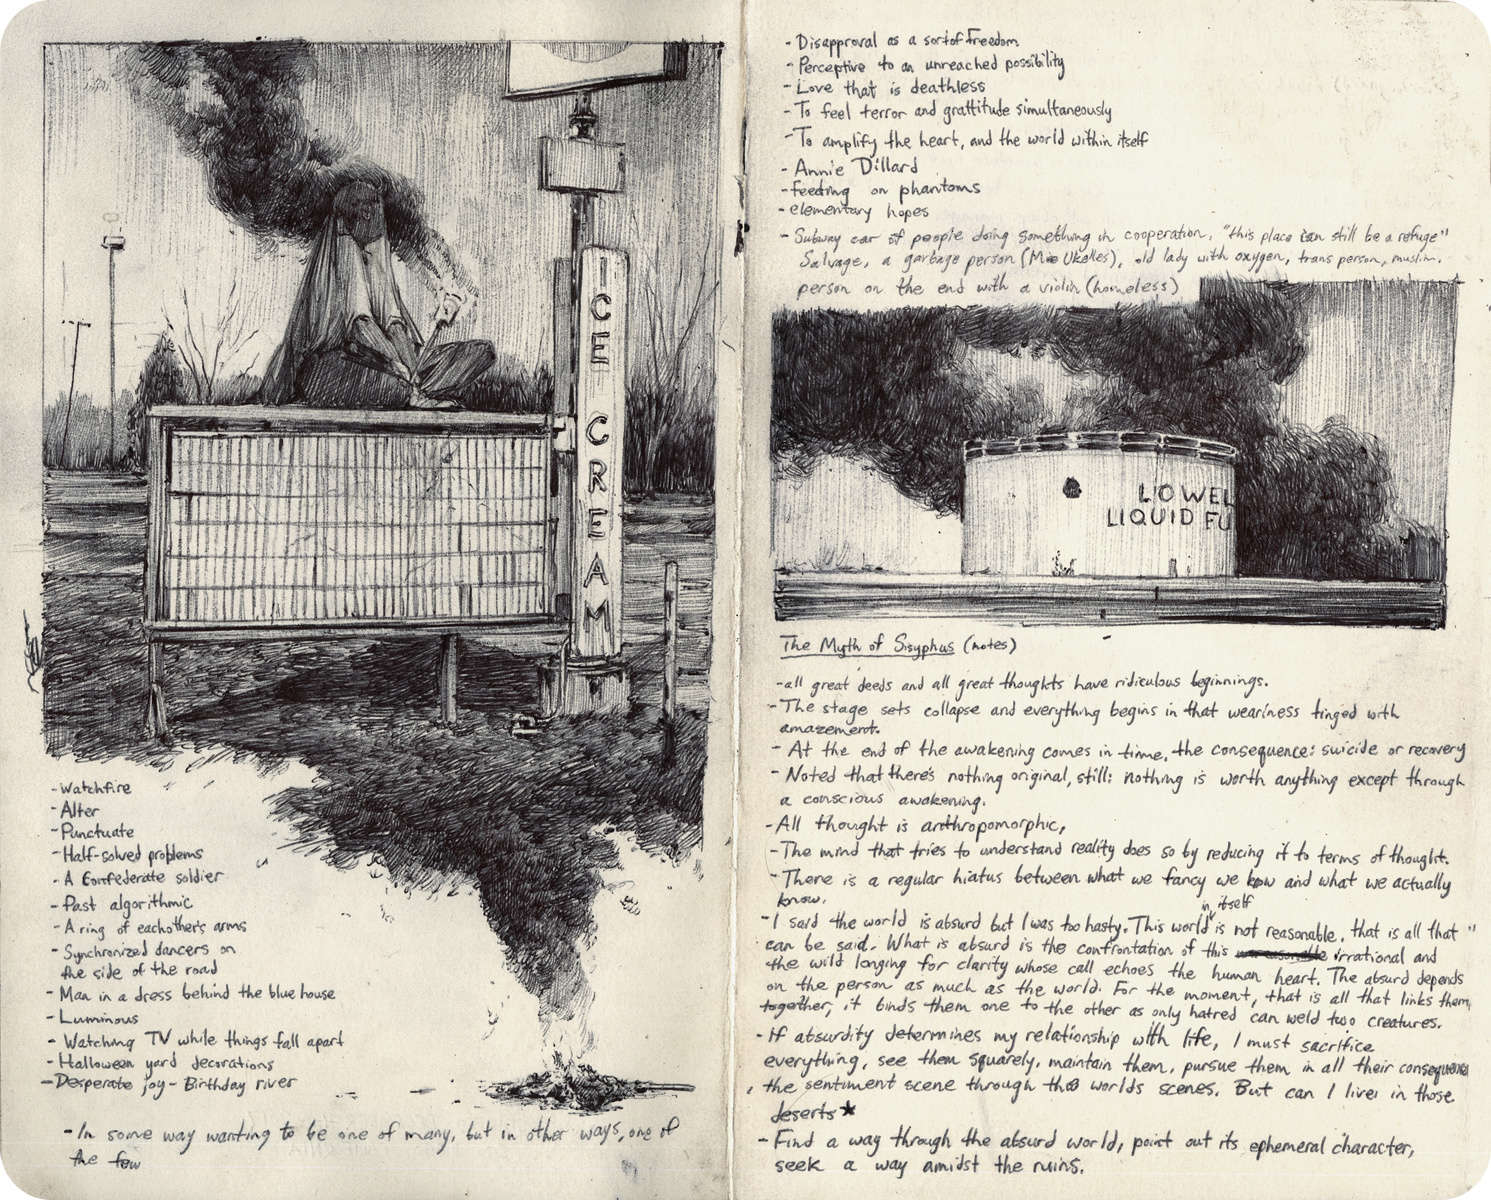 ICE CREAM
- Watchfire
- Alter
- Punctuate
- Half-solved problems
- A Confederate soldier
- Past algorithmic
- A ring of eachother's arms
- Synchronized dancers on
the side of the road
- Man in a dress behind the blue house
- Luminous
- Watching TV while things fall apart
- Halloween yard decorations
- Desperate joy - Birthday river
- In some way wanting to be one of many, but in other ways, one of
the few
- Disapproval as a sort of Freedom
- Perceptive to an unreached possibility
- Love that is deathless
- To feel terror and grattitude simultaneously
- To amplify the heart, and the world within itself
- Annie Dillard
- feeding on phantoms
- elementary hopes
- Subway car of people doing something in cooperation, "this place can still be a refuge"
Salvage, a garbage person (Mie Ukeles), old lady with oxygen, trans person, muslim.
person on the end with a violin (homeless)
LOWEL
LIQUID FU
The Myth of Sisyphus (notes)
- all great deeds and all great thoughts have ridiculous beginnings.
- The stage sets collapse and everything begins in that weariness tinged with
amazement.
- At the end of the awakening comes in time, the consequence: suicide or recovery
- Noted that there's nothing original, still: nothing is worth anything except through
a conscious awakening.
- All thought is anthropomorphic,
- The mind that tries to understand reality does so by reducing it to terms of thought.
- There is a regular hiatus between what we fancy we know and what we actually
know.
in itself
- I said the world is absurd but I was too hasty. This world is not reasonable, that is all that "
can be said. What is absurd is the confrontation of this irrational and
the wild longing for clarity whose call echoes the human heart. The absurd depends
on the person as much as the world. For the moment, that is all that links them
together, it binds them one to the other as only hatred can weld two creatures.
- If absurdity determines my relationship with life, I must sacrifice
everything, see them squarely, maintain them, pursue them in all their consequence
the sentiment scene through the worlds scenes. But can I live in those
deserts*
- Find a way through the absurd world, point out its ephemeral character,
seek a way amidst the ruins.